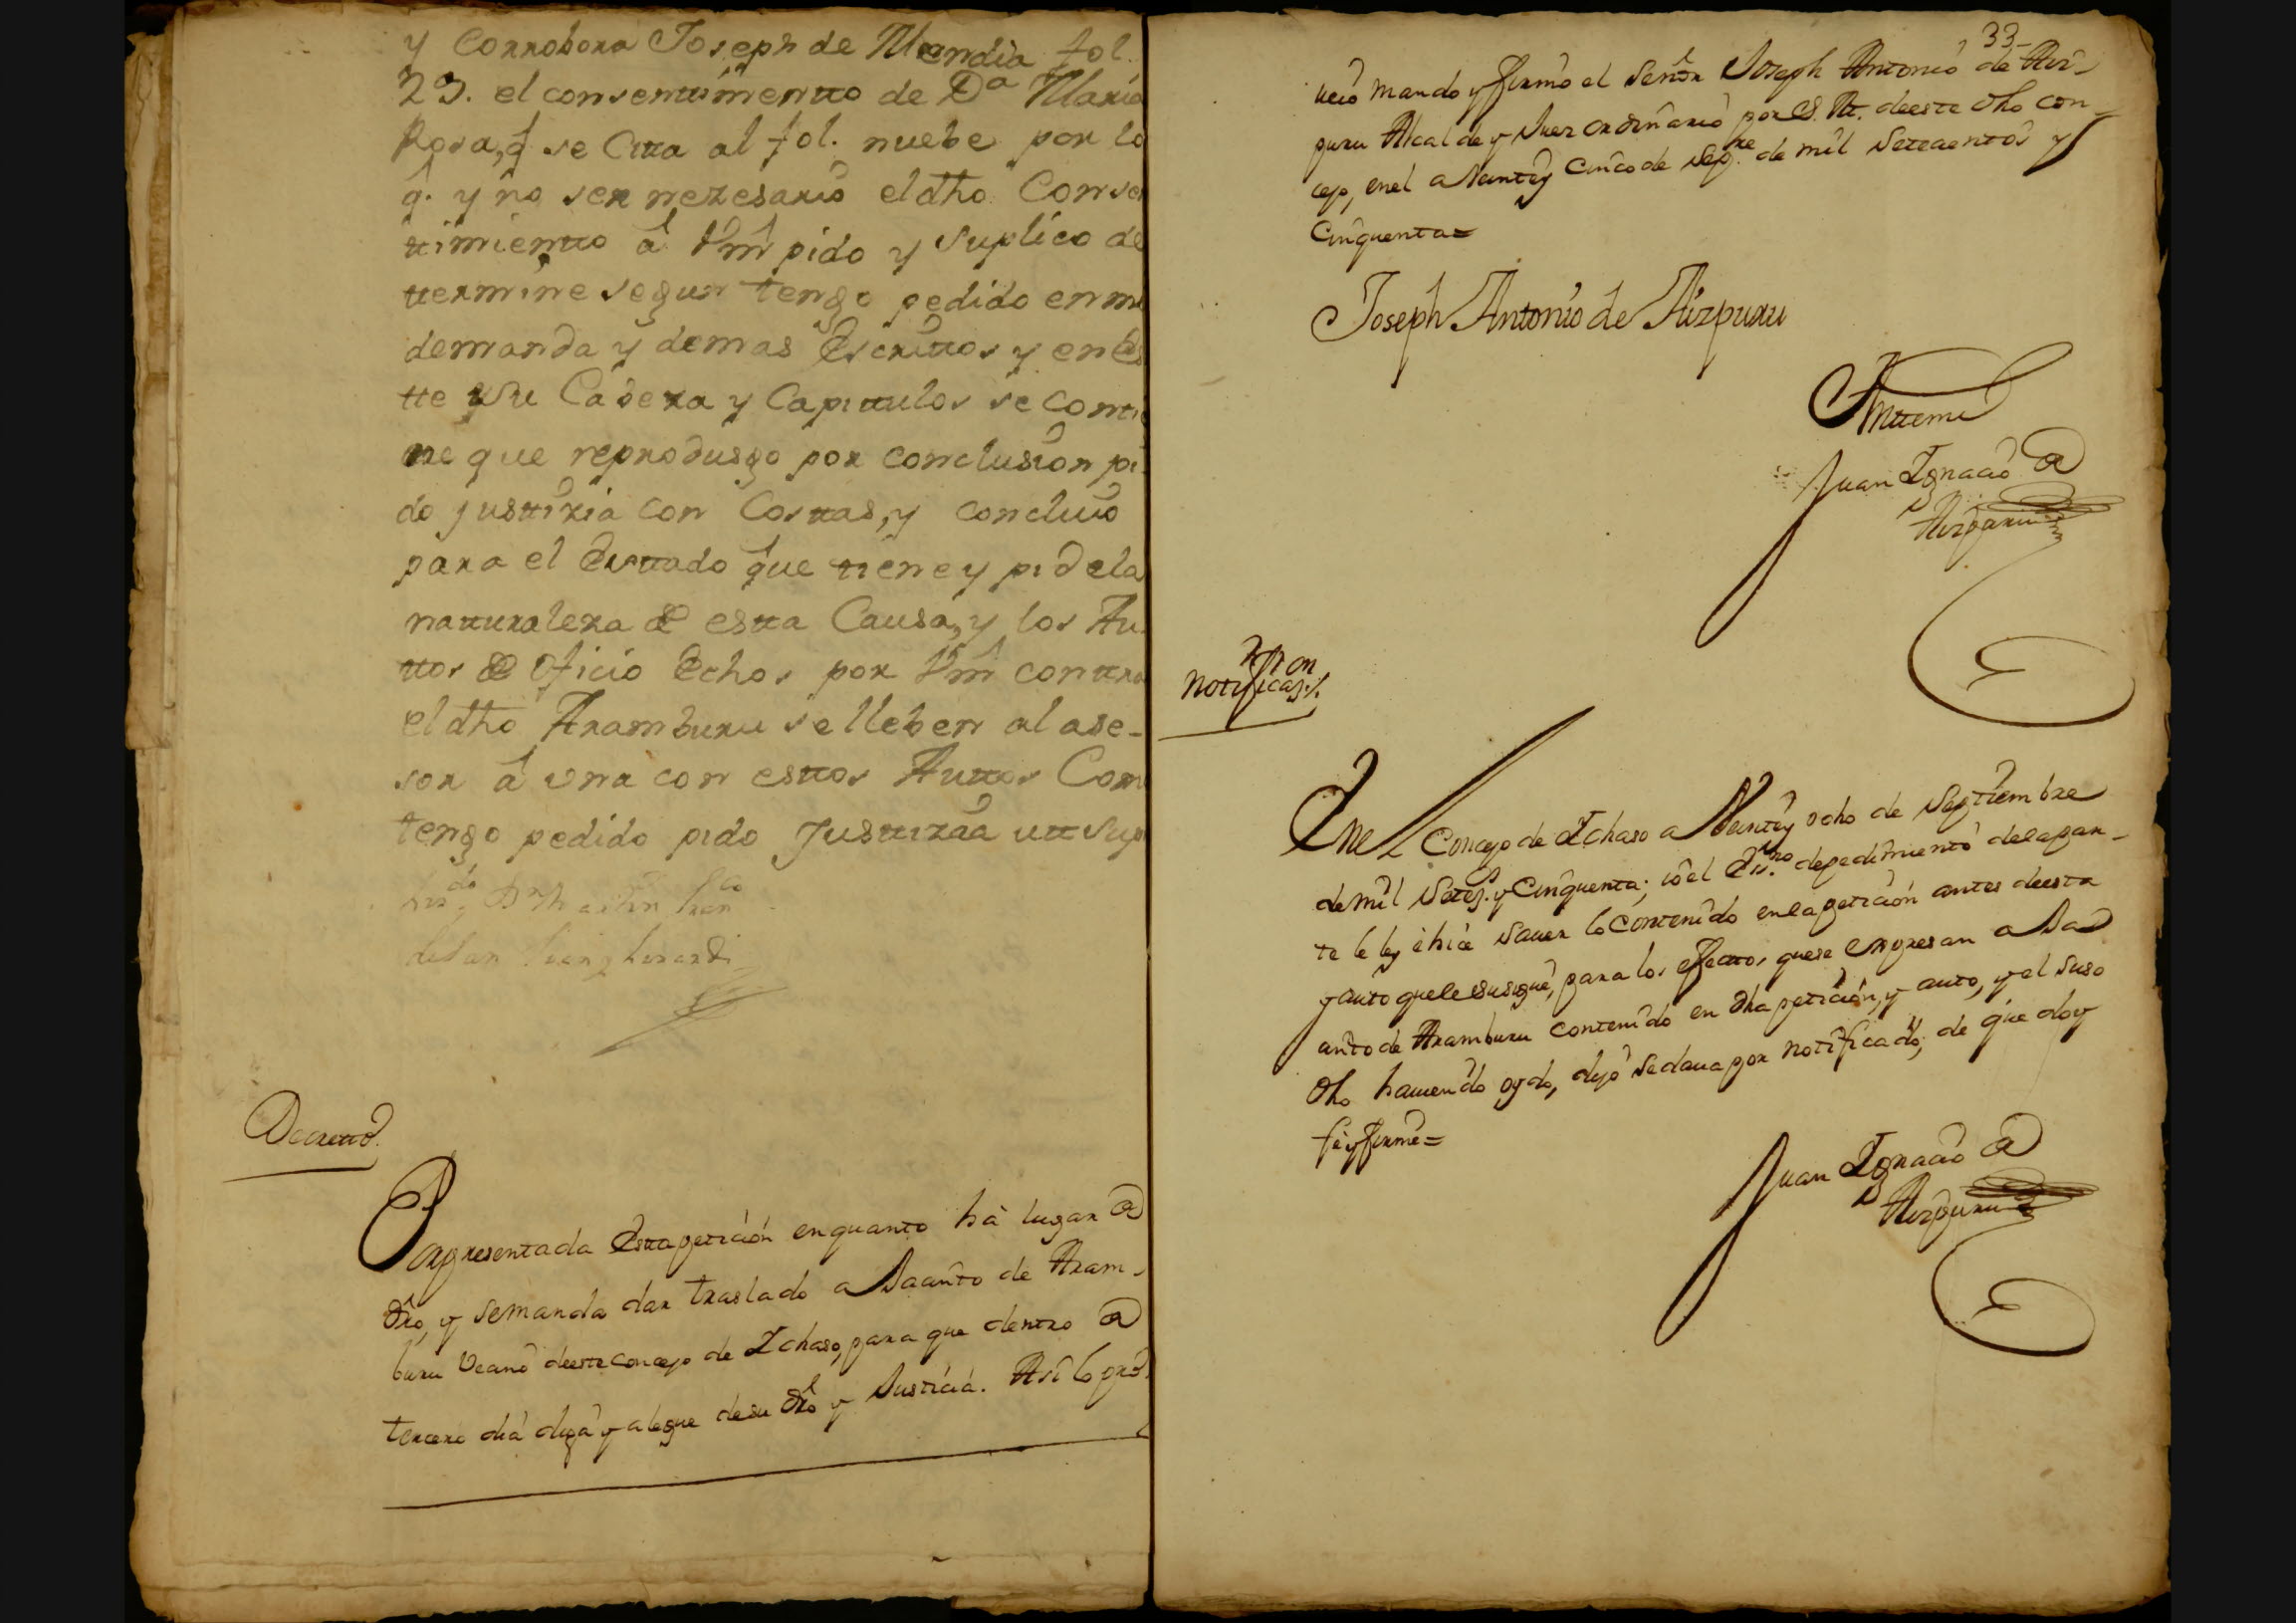 y Corrobora Joseph de Mendia fol.
23. el consenttimientto de Dª Maria
Rosa, q̂ se Citta al fol. nuebe por lo
q̂. y no ser nezesario el dho Consen
ttimientto â Vm̂ pido y Suplico de
ttermine segun tengo pedido en mi
demanda y demas Escrittos y en Es
tte y su Cabeza y Capittulos se conttie
ne que reprodusgo por conclusion pi
do justtizia con Costtas, y concluio
para el Esttado que tiene y pide la
natturaleza de estta Causa, y los Au
ttos de Oficio Echos por Vm̂ conttra
el dho Aramburu se lleben al ase-
sor â una con esttos Auttos Como
tengo pedido pido Justtizia utt Sup
Liz.do Dn Martin Franco
de San
Decretto.
Por presentada Estta peticion en quanto hà lugar de
dro, y se manda dar traslado a Saanto de Aram-
buru Vecino de este concejo de Ichaso, para que dentro de
tercero dia diga y alegue de su dro y Justicia. Asi lo pro
33-
ueiò mando y firmò el Señor Joseph Antonio de Aiz-
puru Alcalde y Juez ordinario por S. M. de este dho con-
cejo, en el a Veinte y Cinco de Sepre de mil Setecientos y
Cinquenta=
Joseph Antonio de Aizpuru
Anttemi
Juan Ignacio de
Aizpuru
Notificazon
En el Concejo de Ichaso a Veinte y ocho de Septiembre
de mil Setez.s y Cinquenta; io el Es.no de pedimiento de la par-
te le ley è hice sauer lo contenido en la peticion antes de esta
y auto que le subsigue, para los effecttos que se expresan a Sa
anto de Aramburu contenido en dha peticion, y auto, y el suso
dho hauiendo oydo, dijo se daua por notificado, de que doy
fè y firmè=
Juan Ignacio de
Aizpuru